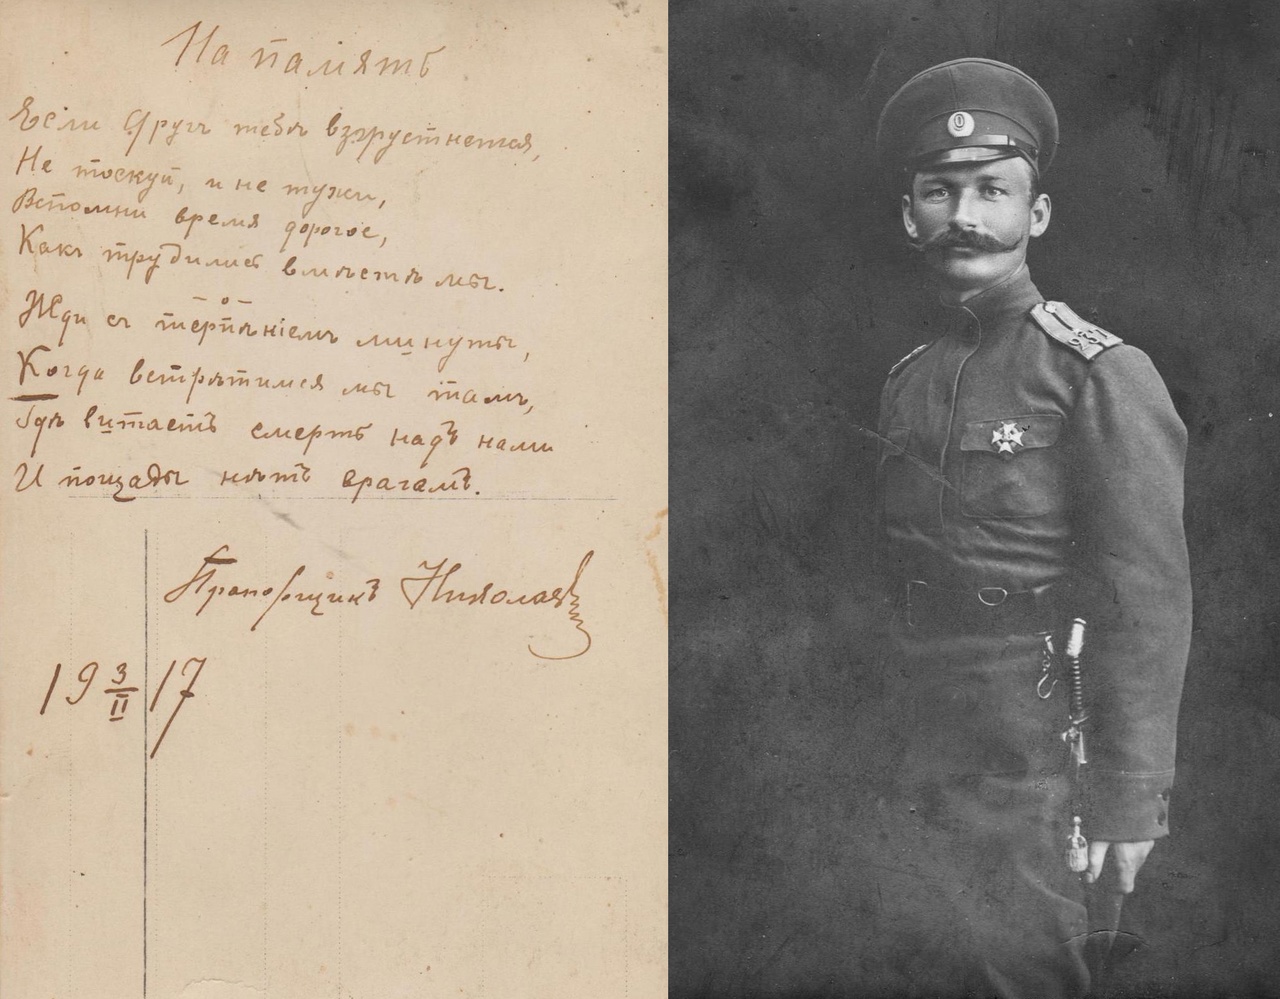 На память
Если другъ тебѣ взгрустнется,
Не тоскуй, и не тужи,
Вспомни время дорогое,
Какъ трудились вмѣстѣ мы.
—о—
Жди съ терпѣніемъ минуты,
Когда встрѣтимся мы тамъ,
Гдѣ витаетъ смерть надъ нами
И пощады нѣтъ врагамъ.
Прапорщикъ Николаев
19 3/II 17